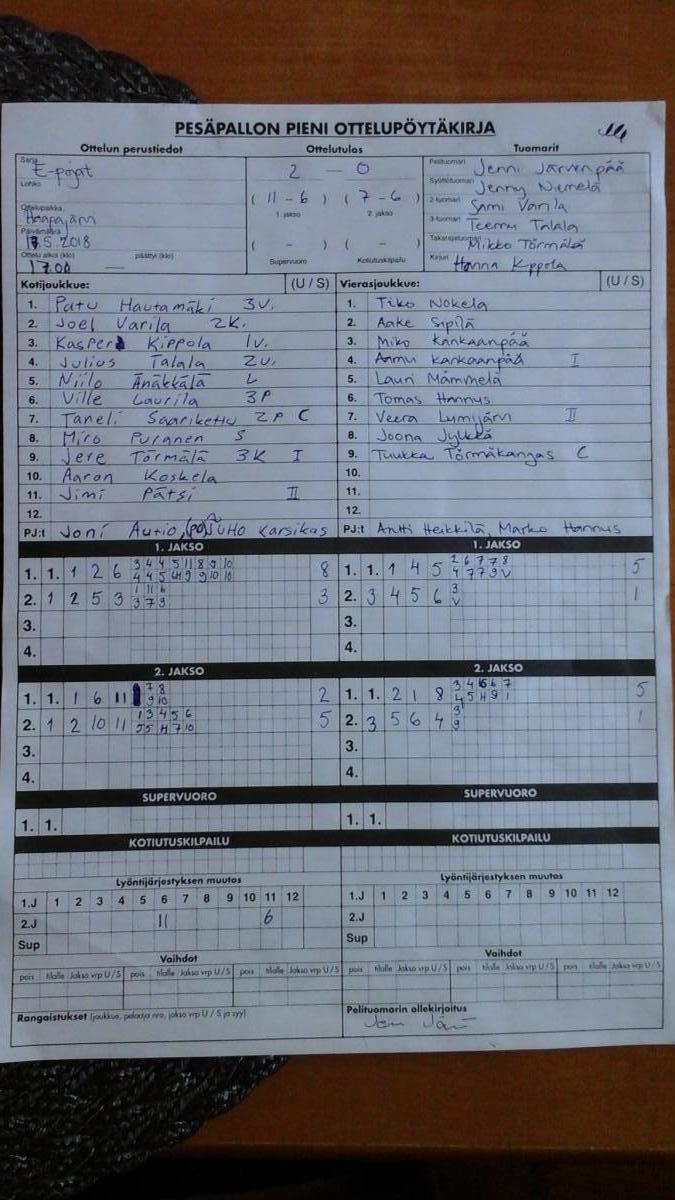 PESÄPALLON PIENI OTTELUPÖYTÄKIRJA
Ottelun perustiedot Ottelutulos Tuomarit
Sarja E-pojat
Lohko
Ottelupaikka Haapajärvi
Päivämäärä 13.5.2018
Ottelu alkoi (klo) 17.00 — päättyi (klo)
2 — 0
( 11 - 6 ) ( 7 - 6 )
1. jakso 2. jakso
( - ) ( - )
Supervuoro Kotiutuskilpailu
Pelituomari Jenni Järvenpää
Syöttötuomari Jenny Niemelä
2-tuomari Sami Varila
3-tuomari Teemu Talala
Takarajatuomari Mikko Törmälä
Kirjuri Hanna Kippola
Kotijoukkue: (U / S)
1. Patu Hautamäki 3V.
2. Joel Varila 2K.
3. Kasper Kippola 1v.
4. Julius Talala 2v.
5. Niilo Änäkkälä L
6. Ville Laurila 3P
7. Taneli Saariketu 2P C
8. Miro Puranen S
9. Jere Törmälä 3K I
10. Aaron Koskela
11. Jimi Pätsi II
12.
PJ:t Joni Autio, (po) Juho Karsikas
Vierasjoukkue: (U / S)
1. Tiko Nokela
2. Aake Sipilä
3. Miko Kankaanpää
4. Kankaanpää I
5. Lauri Mämmelä
6. Tomas Hannus
7. Veera Lumijärvi II
8. Joona Jylkkä
9. Tuukka Törmäkangas C
10.
11.
12.
PJ:t Antti Heikkilä, Marko Hannus
1. JAKSO
1. 1. 1 2 6 3 4 4 5 11 8 9 10 8
4 4 5 9 9 10 10
2. 1 2 5 3 1 11 6 3
3 7 9
3.
4.
1. JAKSO
1. 1. 1 4 5 2 6 7 7 8 5
4 7 7 9 V
2. 3 4 5 6 3 1
V
3.
4.
2. JAKSO
1. 1. 1 6 11 7 8 2
9 10
2. 1 2 10 11 1 3 4 5 6 5
5 5 H 7 10
3.
4.
2. JAKSO
1. 1. 2 1 8 3 4 6 7 5
4 5 H 9 1
2. 3 5 6 4 9 1
9
3.
4.
SUPERVUORO
1. 1.
SUPERVUORO
1. 1.
KOTIUTUSKILPAILU
KOTIUTUSKILPAILU
Lyöntijärjestyksen muutos
1.J 1 2 3 4 5 6 7 8 9 10 11 12
2.J 11 6
Sup
Lyöntijärjestyksen muutos
1.J 1 2 3 4 5 6 7 8 9 10 11 12
2.J
Sup
Vaihdot
pois tilalle Jakso vrp U / S pois tilalle Jakso vrp U / S pois tilalle Jakso vrp U / S
Vaihdot
pois tilalle Jakso vrp U / S pois tilalle Jakso vrp U / S pois tilalle Jakso vrp U / S
Rangaistukset (joukkue, pelaaja nro, jakso vrp U / S ja syy)
Pelituomarin allekirjoitus